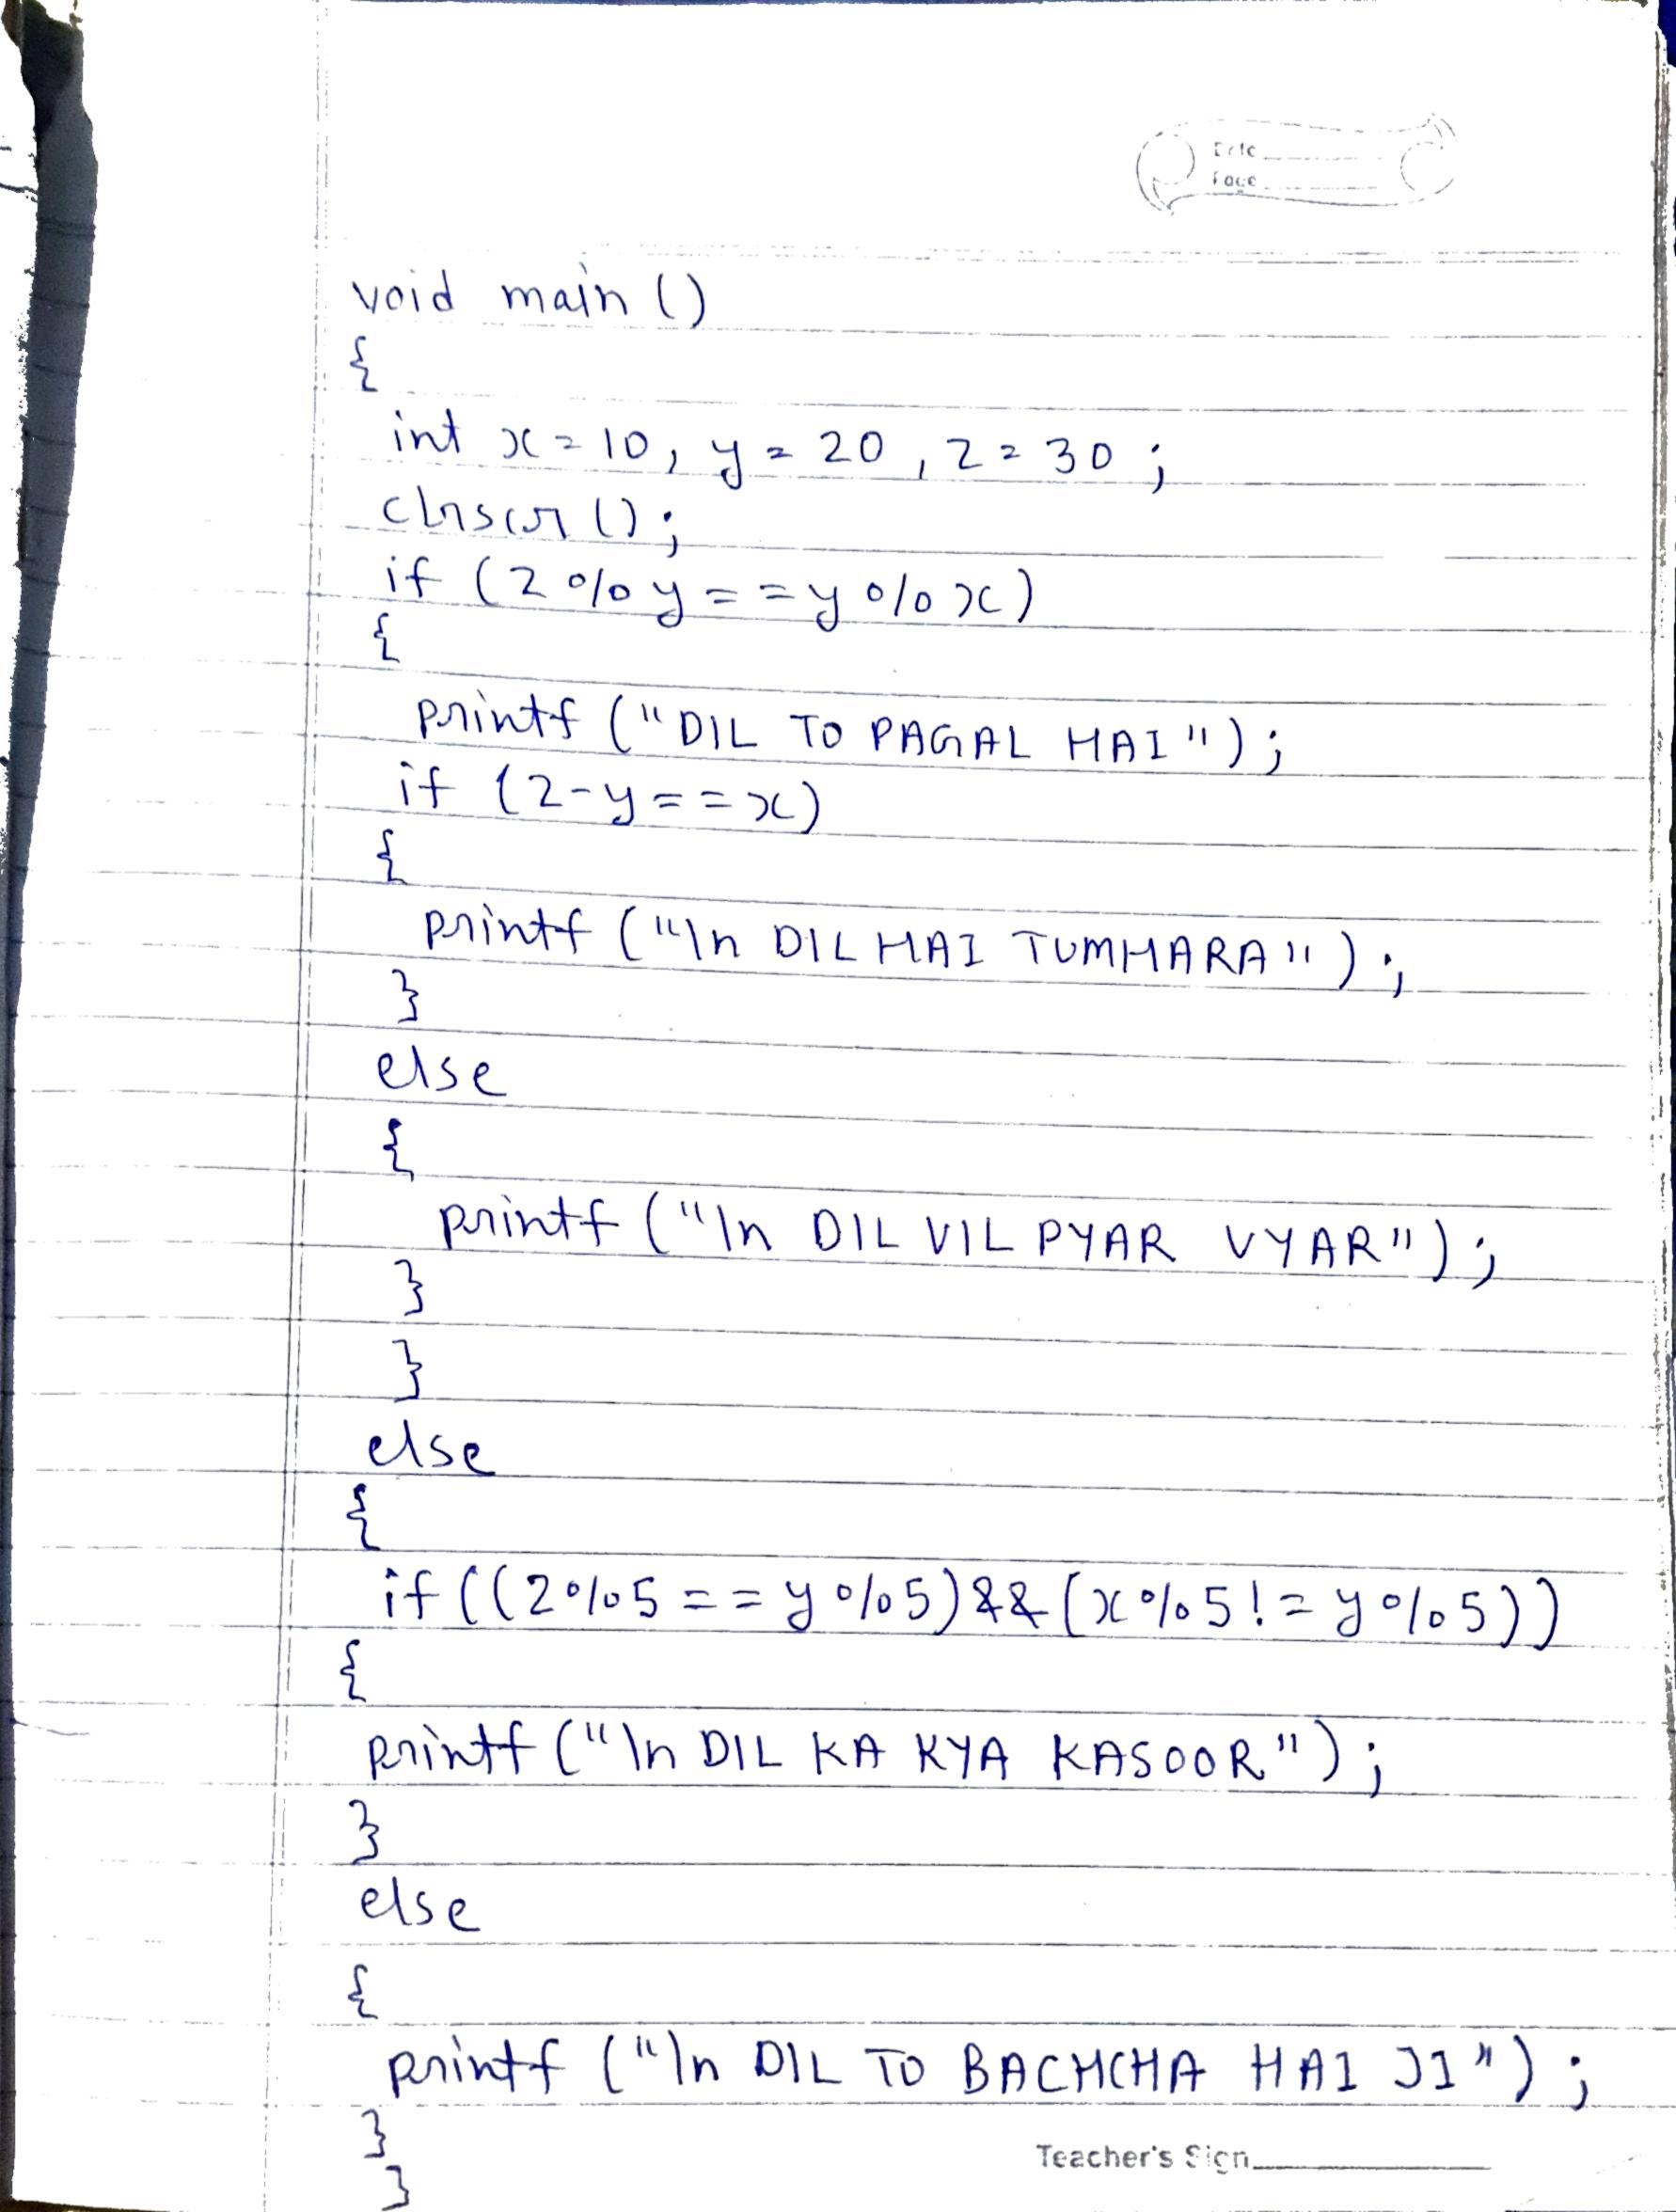 Date
Page
void main ()
{
int x = 10, y = 20, z = 30 ;
clrscr ();
if (z % y == y % x)
{
printf ("DIL TO PAGAL HAI") ;
if (z-y == x)
{
printf ("\n DIL HAI TUMHARA") ;
}
else
{
printf ("\n DIL VIL PYAR VYAR") ;
}
}
else
{
if ((z%5 == y%5) && (x%5 != y%5))
{
printf ("\n DIL KA KYA KASOOR") ;
}
else
{
printf ("\n DIL TO BACHCHA HAI JI") ;
}
}
Teacher's Sign